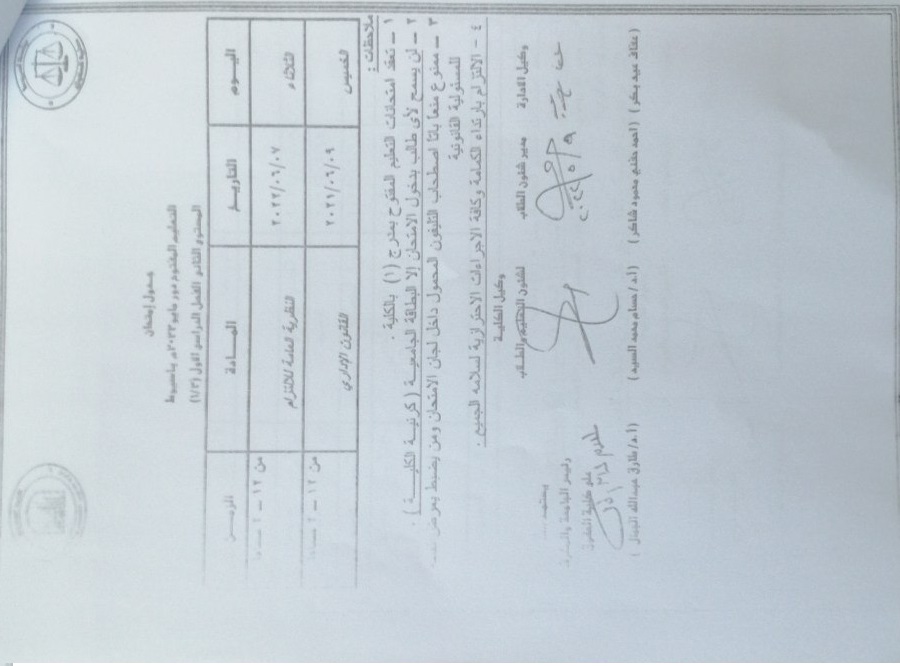 جدول إمتحان
التعليم المفتوح دور مايو ٢٠٢٢م بأسيوط
المستوى الثانى الفصل الدراسى الاول (١/٢)
اليـوم التاريـخ المـادة الزمـن
الثلاثاء ٢٠٢٢/٠٦/٠٧ النظرية العامة للالتزام من ١٢ – ٢
الخميس ٢٠٢١/٠٦/٠٩ القانون الإداري من ١٢ – ٢
ملاحظات :
١ – تعقد امتحانات التعليم المفتوح بمدرج (١) بالكلية .
٢ – لن يسمح لأى طالب بدخول الامتحان إلا البطاقة الجامعيـة ( كرنيـة الكليـة ) .
٣ – ممنوع منعا باتا اصطحاب التليفون المحمول داخل لجان الامتحان ومن يضبط يعرض
للمسئولية القانونية
٤ – الالتزام بارتداء الكمامة وكافة الاجراءات الاحترازية لسلامه الجميع .
وكيل الادارة مدير شئون الطلاب وكيل الكلية
لشئون التعليم والطلاب
يعتمد
رئيس الجامعة
على كلية الحقوق
(عفاف عبيد بكر) (احمد حفني محمود شاكر) (ا.د/حسام محمد السيد) (ا.د/طارق عبدالله الجمال)